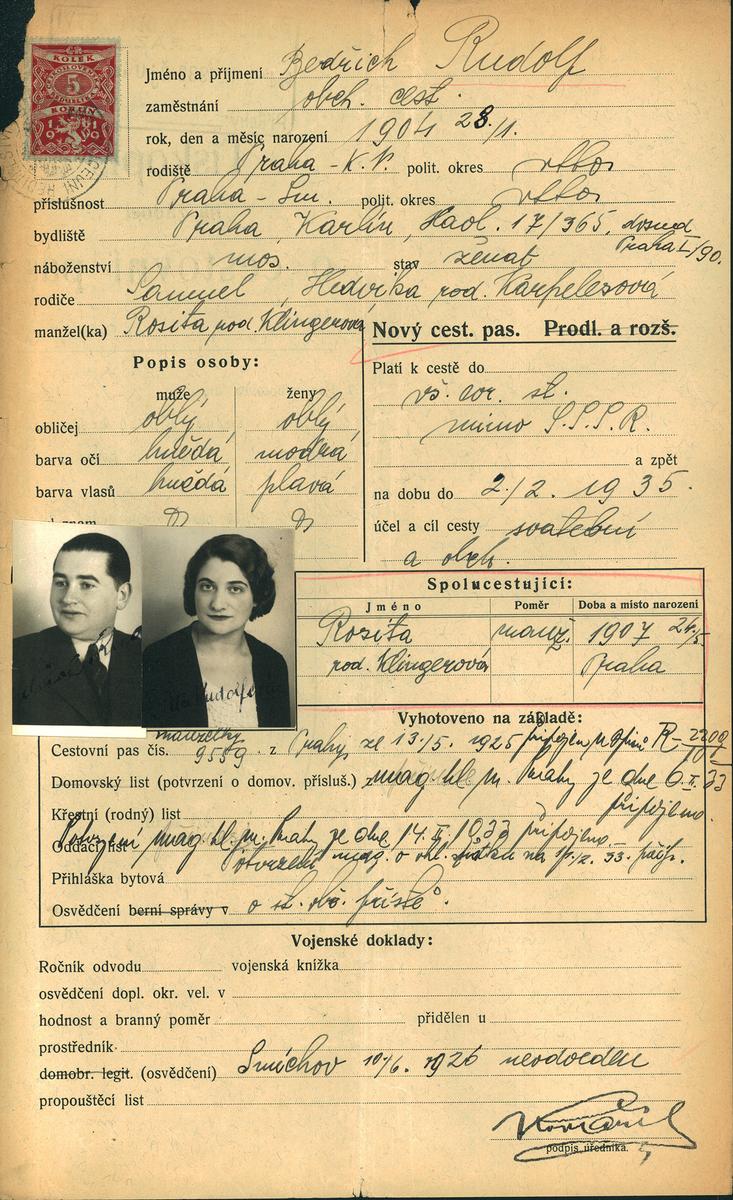 KOLEK
5
Jméno a příjmení Bedřich Rudolf
zaměstnání obch. cest.
rok, den a měsíc narození 1904 28/1.
rodiště Praha - K.V. polit. okres
příslušnost Praha - Sm. polit. okres
bydliště Praha, Karlín, 17/365. dosud
Praha I/90.
náboženství mos. stav ženat
rodiče Samuel, Hedvika rod. Karpelesová
manžel(ka) Rosita rod. Klingerová
Nový cest. pas. Prodl. a rozš.
Popis osoby:
muže ženy
obličej oblý oblý
barva očí hnědá modrá
barva vlasů hnědá plavá
Platí k cestě do
vš. evr. st.
mimo S.S.S.R.
a zpět
na dobu do 2./2. 1935.
účel a cíl cesty svatební
a obch.
Spolucestující:
Jméno Poměr Doba a místo narození
Rosita manž. 1907 24/5
rod. Klingerová Praha
Vyhotoveno na základě:
manželky
Cestovní pas čís. 9559 z Prahy ze 13./5. 1925
Domovský list (potvrzení o domov. přísluš.) z mag. hl. m. Prahy ze dne 6.II.33
připojeno.
Křestní (rodný) list
Potvrzení mag. hl. m. Prahy ze dne 14.II.1933 připojeno.
Oddací list
Potvrzení mag. o
Přihláška bytová
Osvědčení berní správy v o st. obč. příště.
Vojenské doklady:
Ročník odvodu vojenská knížka
osvědčení dopl. okr. vel. v
hodnost a branný poměr přidělen u
prostředník
domobr. legit. (osvědčení) Smíchov 10/6. 1926 neodveden
propouštěcí list
podpis úředníka.